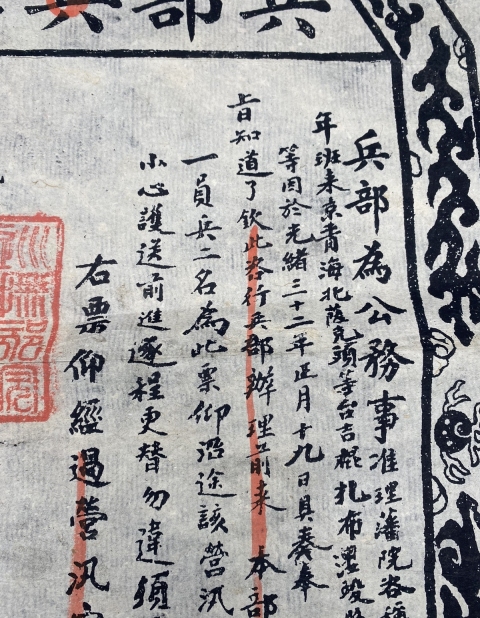 兵部
兵部為公務事准理藩院咨稱
年班來京青海北左克頭等台吉棍扎布灃
等因於光緒三十二年正月十九日具奏奉
旨知道了欽此咨行兵部辦理前來 本部
一員兵二名為此票仰沿途該營汛
小心護送前進逐程更替勿違須
右票仰經過營汛